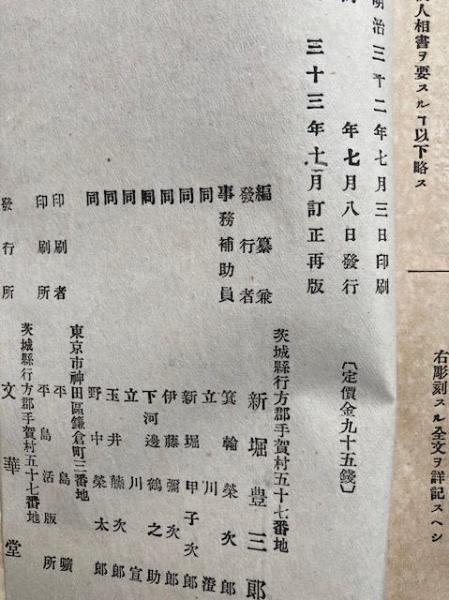 人相書ヲ要スルヿ以下略ス
右彫刻スル全文ヲ詳記スヘシ
明治三十二年七月三日印刷
年七月八日發行
三十三年十一月訂正再版
〔定價金九十五錢〕
茨城縣行方郡手賀村五十七番地
編纂兼發行者 新堀豊三郎
事務補助員 箕輪榮次郎
同 立川澄
同 新堀甲子次郎
同 伊藤彌次郎
同 下河邊鶴之助
同 立川宣
同 玉井藤次郎
同 野中榮太郎
東京市神田區鎌倉町三番地
印刷者 平島曠
印刷所 平島活版所
茨城縣行方郡手賀村五十七番地
發行所 文華堂